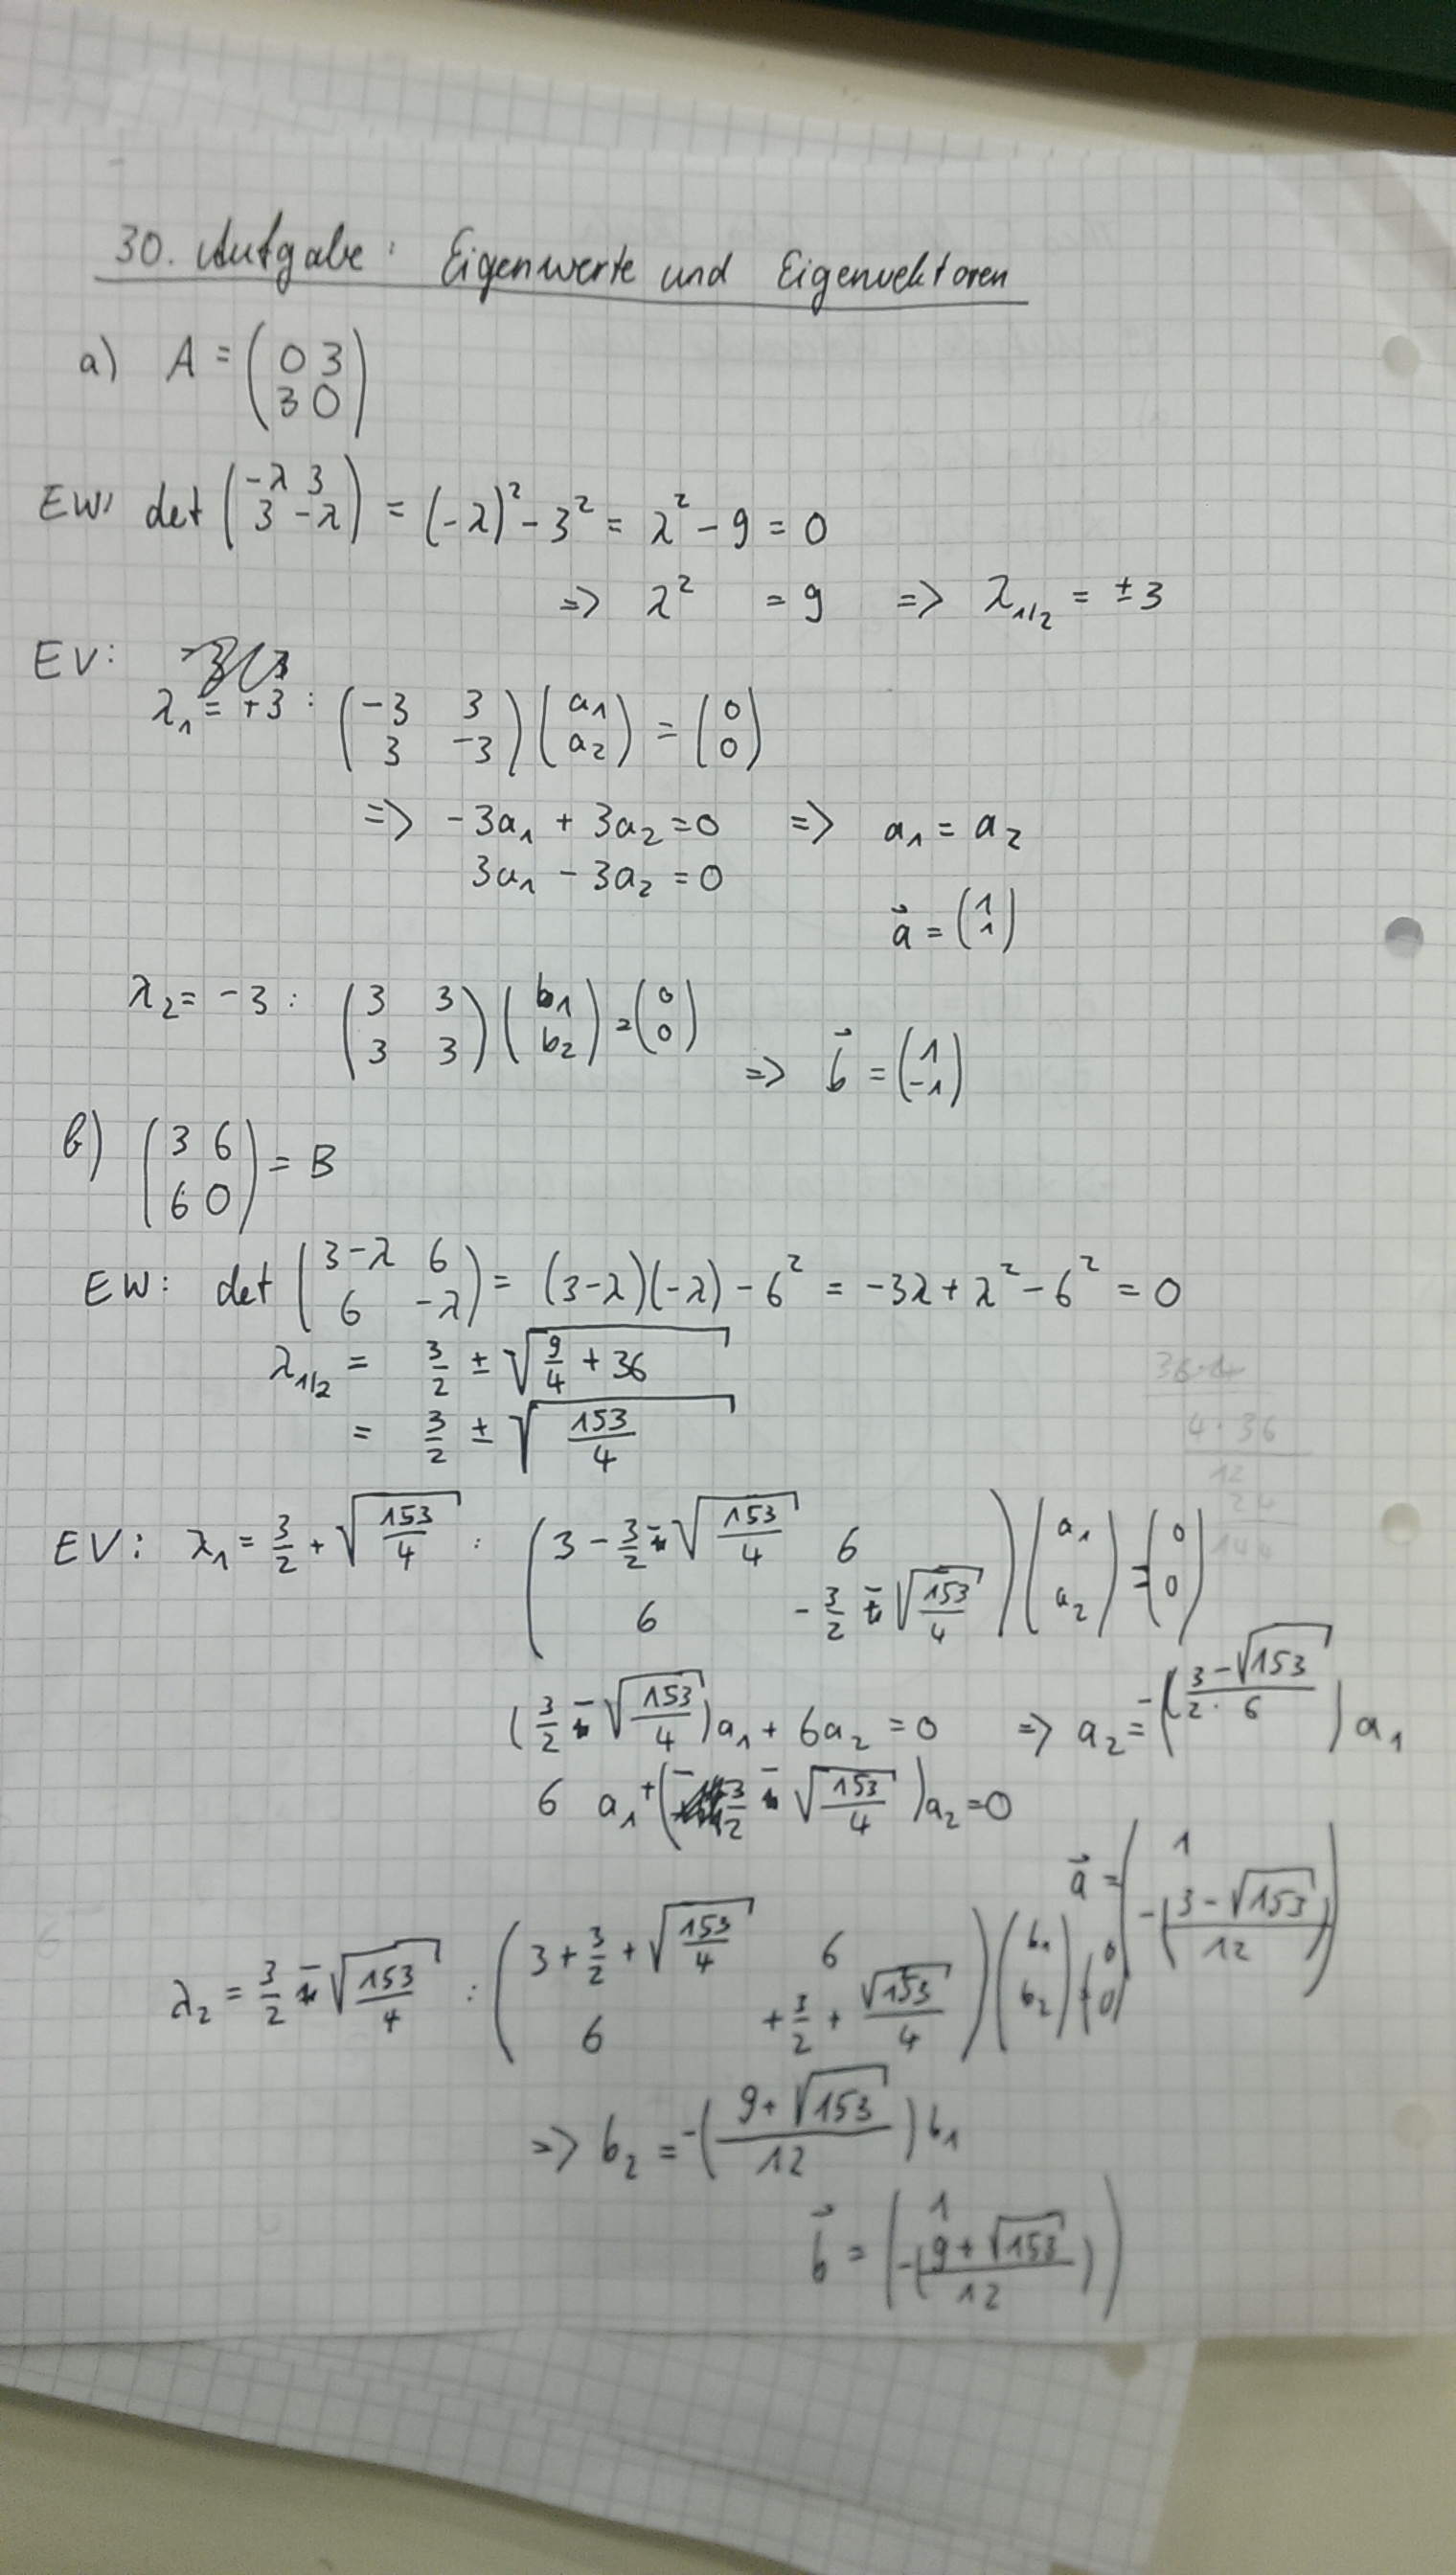 30. Aufgabe: Eigenwerte und Eigenvektoren
a) A = (0 3
3 0)
EW: det (-λ 3
3 -λ) = (-λ)² - 3² = λ² - 9 = 0
=> λ² = 9 => λ₁/₂ = ±3
EV:
λ₁ = +3 : (-3 3
3 -3) (a₁
a₂) = (0
0)
=> -3a₁ + 3a₂ = 0 => a₁ = a₂
3a₁ - 3a₂ = 0
a⃗ = (1
1)
λ₂ = -3 : (3 3
3 3) (b₁
b₂) = (0
0)
=> b⃗ = (1
-1)
b) (3 6
6 0) = B
EW: det (3-λ 6
6 -λ) = (3-λ)(-λ) - 6² = -3λ + λ² - 6² = 0
λ₁/₂ = 3/2 ± √(9/4 + 36)
= 3/2 ± √(153/4)
4·36
12
24
144
EV: λ₁ = 3/2 + √(153/4) : (3 - 3/2 - √(153/4) 6
6 -3/2 - √(153/4)) (a₁
a₂) = (0
0)
(3/2 - √(153/4)) a₁ + 6a₂ = 0 => a₂ = -((3 - √153)/(2·6)) a₁
6 a₁ + (-3/2 - √(153/4)) a₂ = 0
a⃗ = (1
-((3 - √153)/12))
λ₂ = 3/2 - √(153/4) : (3 + 3/2 + √(153/4) 6
6 +3/2 + √153/4) (b₁
b₂) = (0
0)
=> b₂ = -((9 + √153)/12) b₁
b⃗ = (1
-((9 + √153)/12))